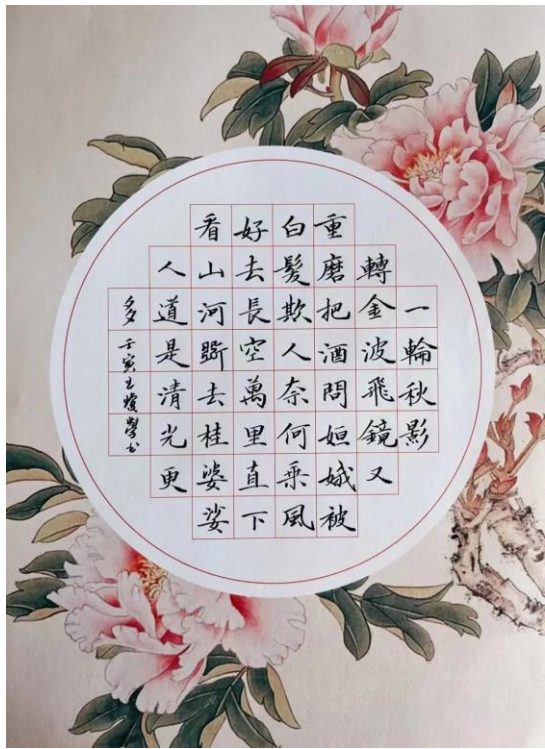 一輪秋影
轉金波飛鏡又
重磨把酒問姮娥被
白髮欺人奈何乘風
好去長空萬里直下
看山河斲去桂婆娑
人道是清光更
多
壬寅 學书